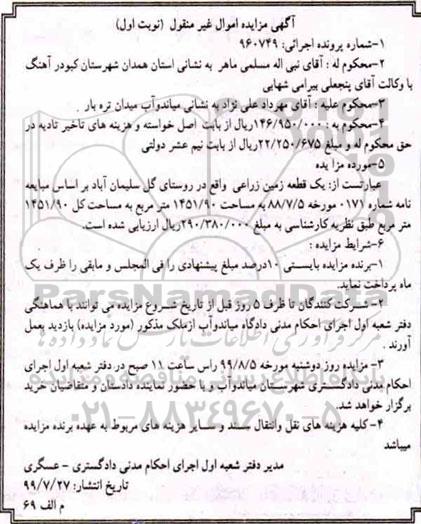 آگهی مزایده اموال غیر منقول (نوبت اول)
۱-شماره پرونده اجرائی: ۹۶۰۷۴۹
۲-محکوم له : آقای نبی اله مسلمی ماهر به نشانی استان همدان شهرستان کبودر آهنگ
با وکالت آقای پنجعلی بیرامی شهابی
۳-محکوم علیه : آقای مهرداد علی نژاد به نشانی میاندوآب میدان تره بار
۴-محکوم به ۱۴۶/۹۵۰/۰۰۰ریال از بابت اصل خواسته و هزینه های تاخیر تادیه در
حق محکوم له و مبلغ ۲۲/۲۵۰/۶۷۵ریال از بابت نیم عشر دولتی
۵-مورده مزا یده
عبارتست از: یک قطعه زمین زراعی واقع در روستای گل سلیمان آباد بر اساس مبایعه
نامه شماره ۰۱۷۱ مورخه ۸۸/۷/۵ به مساحت ۱۴۵۱/۹۰ متر مربع به مساحت کل ۱۴۵۱/۹۰
متر مربع طبق نظریه کارشناسی به مبلغ ۲۹۰/۳۸۰/۰۰۰ریال ارزیابی شده است.
۶-شرایط مزایده :
۱-برنده مزایده بایستی ۱۰درصد مبلغ پیشنهادی را فی المجلس و مابقی را ظرف یک
ماه پرداخت نماید.
۲-شرکت کنندگان تا ظرف ۵ روز قبل از تاریخ شروع مزایده می توانند با هماهنگی
دفتر شعبه اول اجرای احکام مدنی دادگاه میاندوآب ازملک مذکور (مورد مزایده) بازدید بعمل
آورند .
۳- مزایده روز دوشنبه مورخه ۹۹/۸/۵ راس ساعت ۱۱ صبح در دفتر شعبه اول اجرای
احکام مدنی دادگستری شهرستان میاندوآب و با حضور نماینده دادستان و متقاضیان خرید
برگزار خواهد شد.
۴-کلیه هزینه های نقل وانتقال سند و سایر هزینه های مربوط به عهده برنده مزایده
میباشد
مدیر دفتر شعبه اول اجرای احکام مدنی دادگستری - عسگری
تاریخ انتشار: ۹۹/۷/۲۷
م الف ۶۹
ParsNamadData
۰۲۱-۸۸۳۴۹۶۷۰-۵